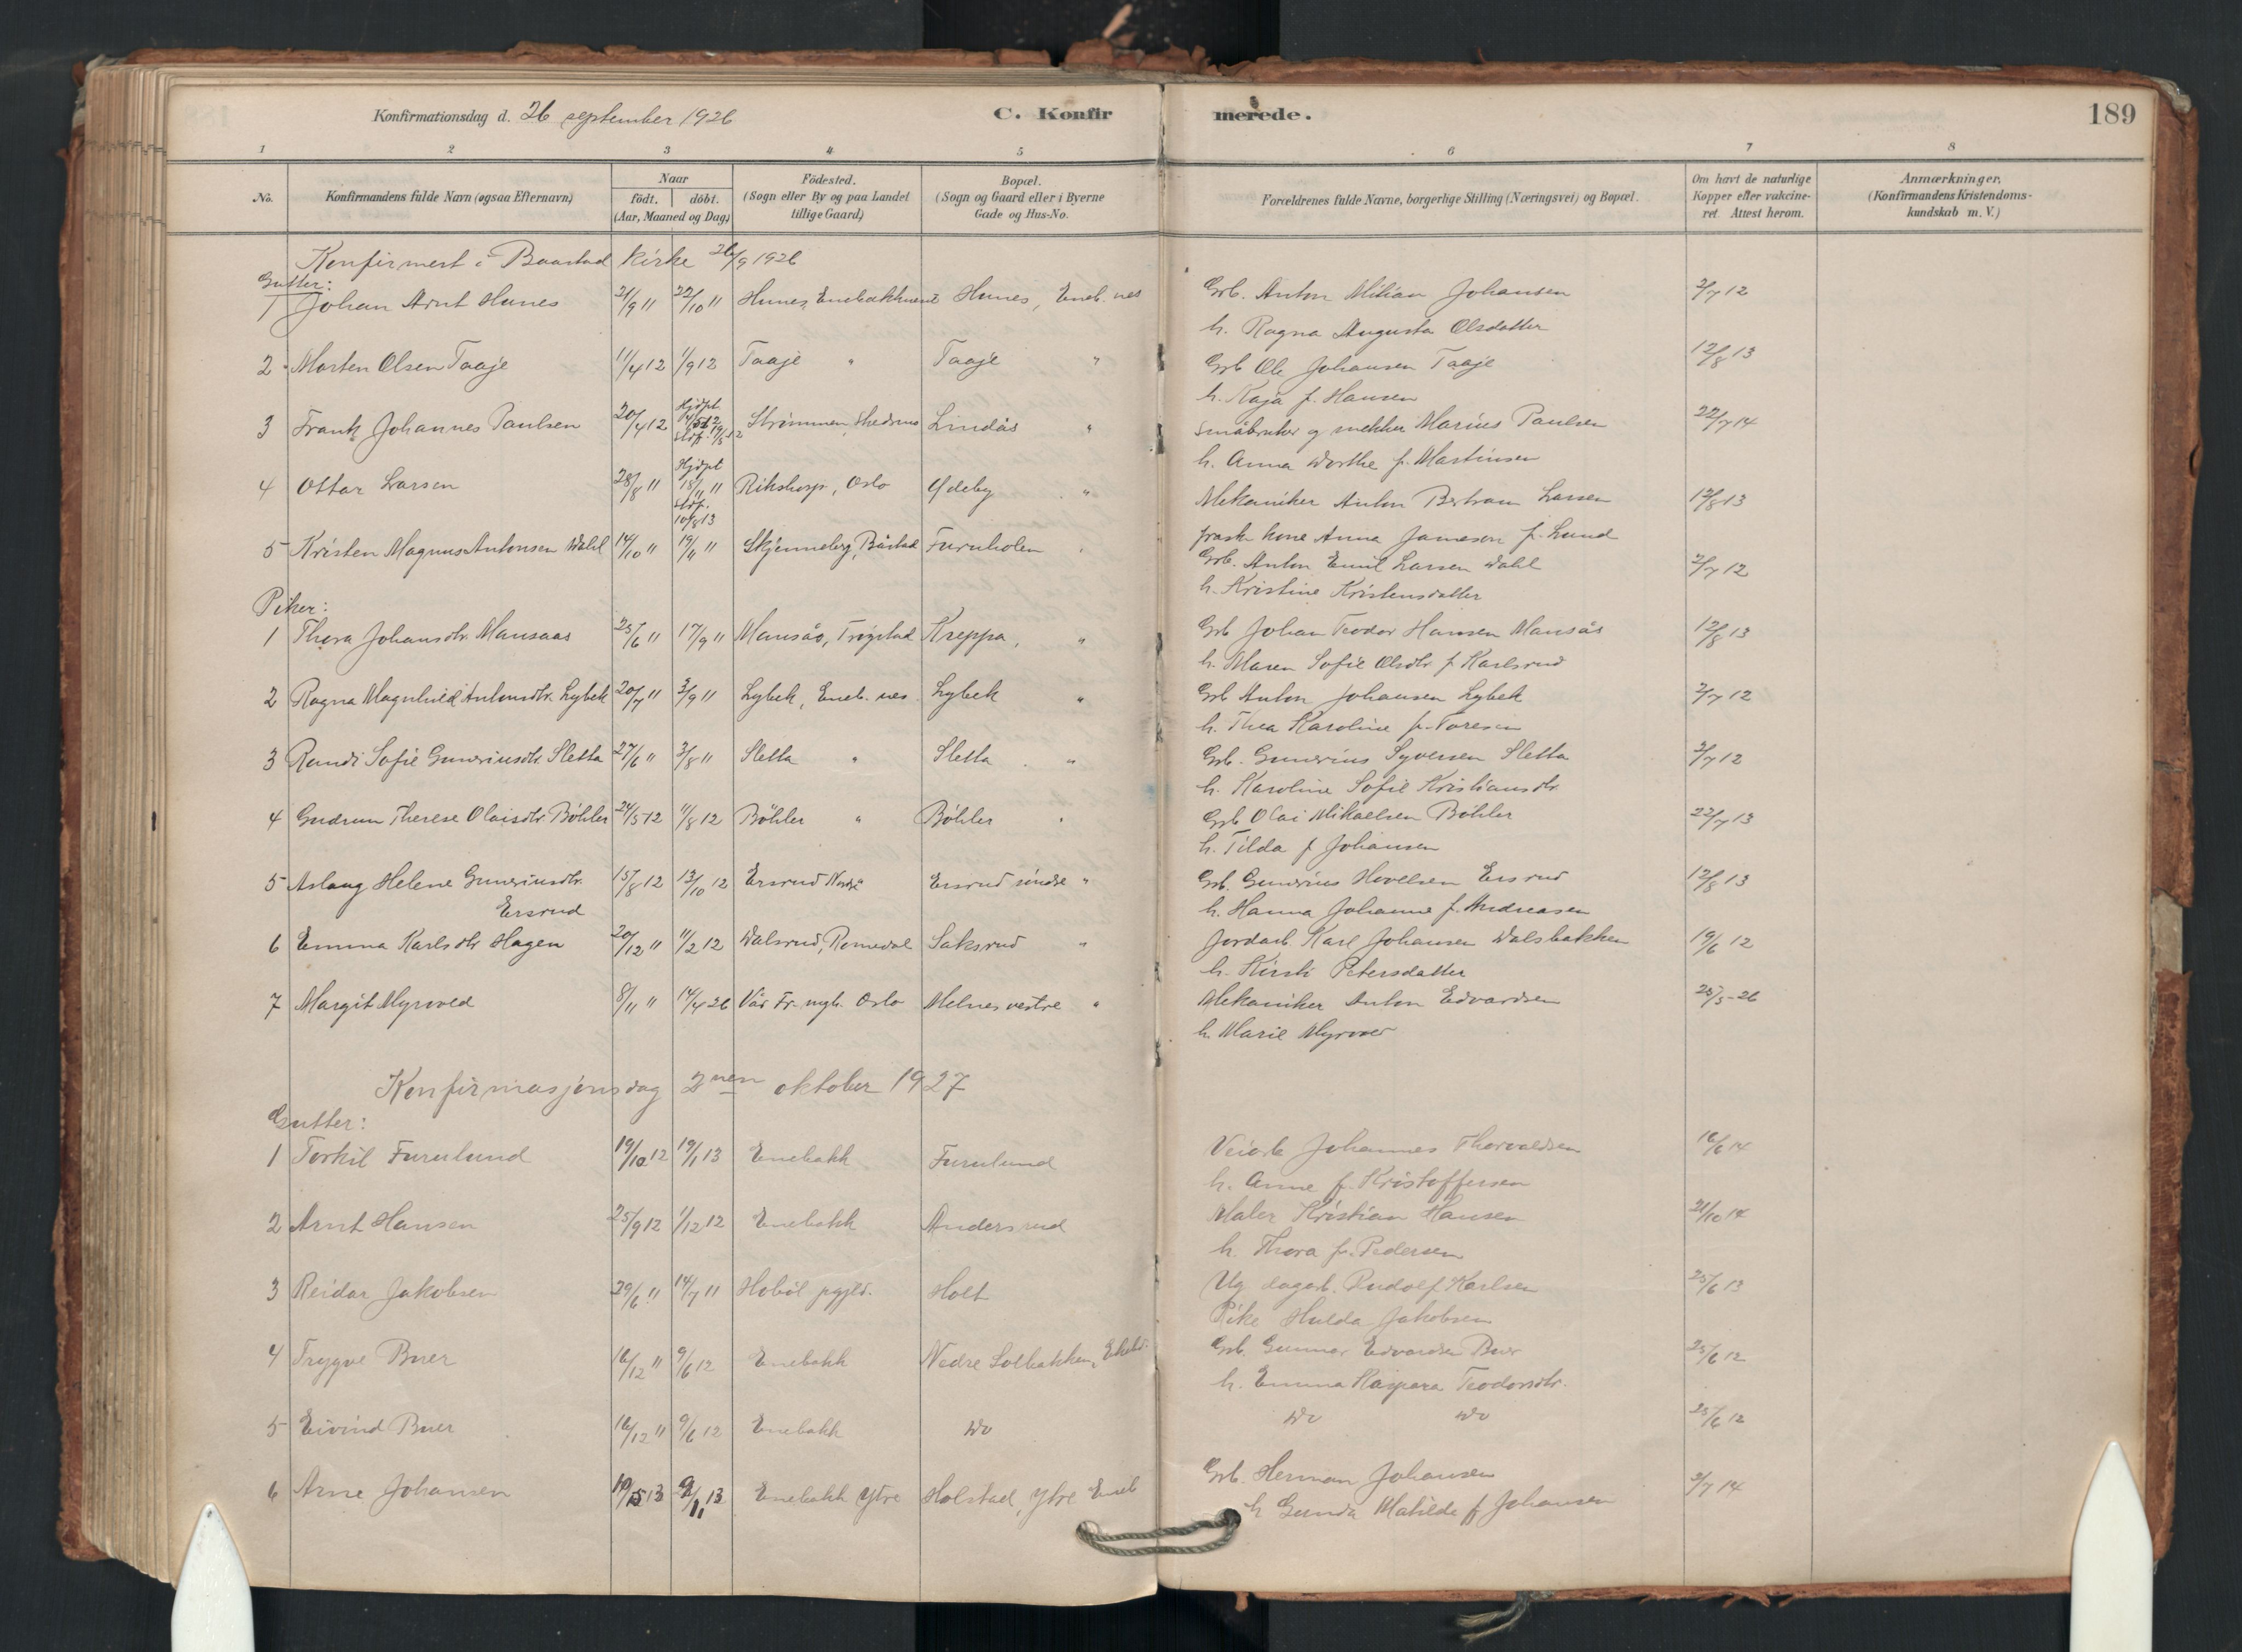 Konfirmationsdag d. 26 september 1926 C. Konfir merede. 189
1 2 3 4 5 6 7 8
No. Konfirmandens fulde Navn (ogsaa Efternavn) Naar födt. döbt. (Aar, Maaned og Dag) Födested. (Sogn eller By og paa Landet tillige Gaard) Bopæl. (Sogn og Gaard eller i Byerne Gade og Hus-No. Forældrenes fulde Navne, borgerlige Stilling (Næringsvei) og Bopæl. Om havt de naturlige Kopper efter vakcineret. Attest herom. Anmærkninger. (Konfirmandens Kristendomskundskab m. V.)
Konfirmert i Baastad kirke 26/9 1926
Gutter:
1 Johan Arnt Hunes 21/9 " 22/10 " Hunes, Enebakknes Hunes, Eneb. nes Grb. Anton Milian Johansen 2/7 12
h. Ragna Augusta Olsdatter
2 Morten Olsen Taaje 11/4 12 1/9 12 Taaje " Taaje " Grb Ole Johansen Taaje 12/8 13
h. Kaja f. Hansen
3 Frank Johannes Paulsen 20/4 12 Hjdpt. Strömmen, Skedsmo Lindås " Småbruker og snekker Marius Paulsen 22/7 14
h. Anna Dorthe f. Martinsen
4 Ottar Larsen 28/8 " Hjdpt 18/11 " stdf. 10/8 13 Rikshosp, Oslo Ydeby " Mekaniker Anton Bertram Larsen 12/8 13
frask. kone Anna Jameson f. Lund
5 Kristen Magnus Antonsen Dahl 14/10 " 19/11 " Skjenneberg, Båstad Furuholen " Grb. Anton Emil Larsen Dahl 2/7 12
h. Kristine Kristensdatter
Piker:
1 Thora Johansdtr. Mansaas 25/6 " 17/9 " Mansås, Trögstad Kreppa, " Grb Johan Teodor Hansen Mansås 12/8 13
h. Maren Sofie Olsdtr f Karlsrud
2 Ragna Magnhild Antonsdtr. Lybek 20/7 " 3/9 " Lybek, Eneb. nes Lybek " Grb Anton Johansen Lybek 2/7 12
h. Thea Karoline f. Toresen
3 Randi Sofie Guneriusdtr. Sletta 27/6 " 3/8 " Sletta " Sletta " Grb. Gunerius Syversen Sletta 2/7 12
h. Karoline Sofie Kristiansdtr
4 Gudrun Therese Olaisdtr. Böhler 24/5 12 11/8 12 Böhler " Böhler " Grb Olai Mikaelsen Böhler 22/7 13
h. Tilda f Johansen
5 Aslaug Helene Guneriusdtr. 15/8 12 13/10 12 Ersrud Nordre Ersrud söndre " Grb. Gunerius Hovelsen Ersrud 12/8 13
Ersrud h. Hanna Johanne f. Andreasen
6 Emma Karlsdtr Hagen 20/12 " 11/2 12 Dalsrud, Romedal Saksrud " Jordarb. Karl Johansen Dalsbakken 19/6 12
h. Kirsti Petersdatter
7 Margit Myrvold 8/11 " 14/4 26 Vår Fr. mgh. Oslo Melnes vestre " Mekaniker Anton Edvardsen 25/3-26
h. Marie Myrvold
Konfirmasjonsdag 2nen oktober 1927
Gutter:
1 Torkil Furulund 19/10 12 19/1 13 Enebakk Furulund Veiarb Johannes Thorvaldsen 16/6 14
h. Anne f. Kristoffersen
2 Arnt Hansen 25/9 12 1/12 12 Enebakk Andersrud Maler Kristian Hansen 21/10 14
h. Thora f. Pedersen
3 Reidar Jakobsen 29/6 " 14/7 " Hoböl pgjld. Holt Ug. dagarb. Rudolf Karlsen 25/6 13
Pike Hulda Jakobsen
4 Trygve Buer 16/12 " 9/6 12 Enebakk Nedre Solbakken, Grb. Gunnar Edvardsen Buer 25/6 12
h. Emma Kaspara Teodorsdtr.
5 Eivind Buer 16/12 " 9/6 12 Enebakk do do do 25/6 12
6 Arne Johansen 13 13 Enebakk Ytre Holstad, Ytre Eneb Grb. Herman Johansen 2/7 14
h Gunda Matilde f Johansen